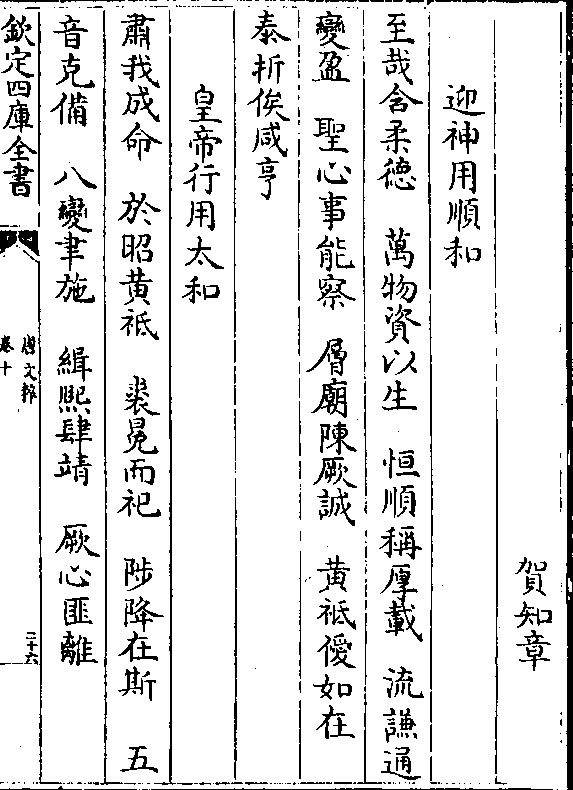 賀知章
迎神用順和
至哉含柔德　萬物資以生　恒順稱厚載　流謙通
變盈　聖心事能察　層廟陳厥誠　黃祇僾如在
泰折俟咸亨
皇帝行用太和
肅我成命　於昭黃祇　裘冕而祀　陟降在斯　五
音克備　八變聿施　緝熙肆靖　厥心匪離
欽定四庫全書
唐文粹
卷十
二十六